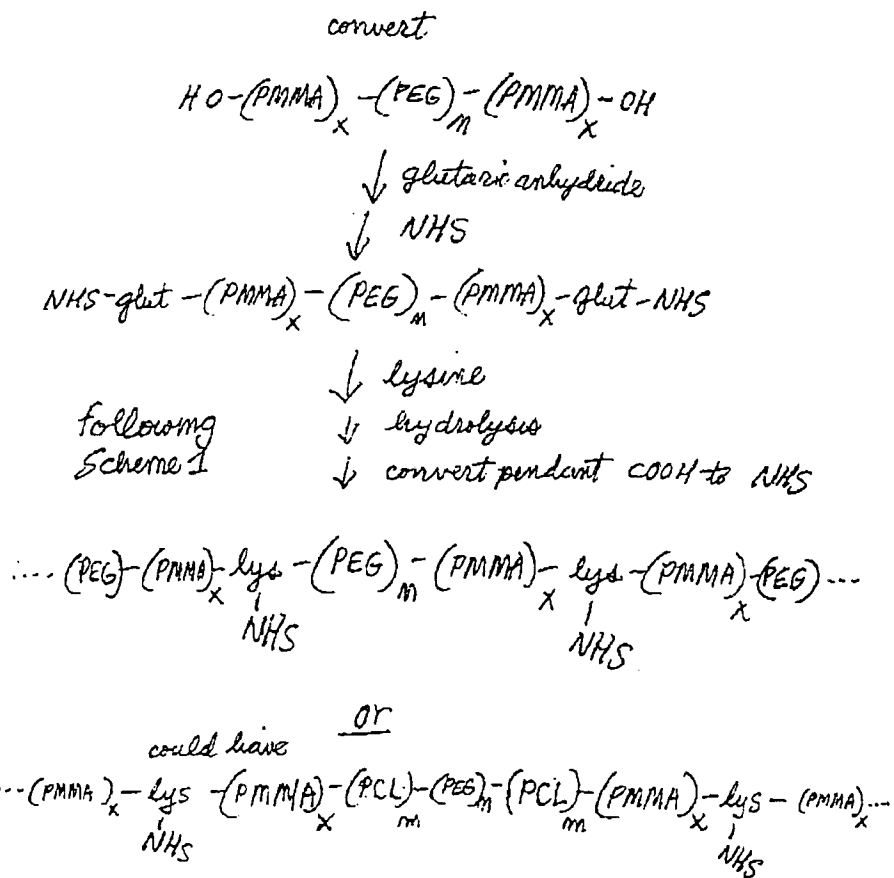 convert
HO-(PMMA)x-(PEG)m-(PMMA)x-OH
↓ glutaric anhydride
↓ NHS
NHS-glut-(PMMA)x-(PEG)m-(PMMA)x-glut-NHS
↓ lysine
following ↓ hydrolysis
Scheme 1 ↓ convert pendant COOH to NHS
....(PEG)-(PMMA)x-lys-(PEG)m-(PMMA)x-lys-(PMMA)x-(PEG)...
NHS NHS
or
could have
...(PMMA)x-lys-(PMMA)x-(PCL)m-(PEG)m-(PCL)m-(PMMA)x-lys-(PMMA)x...
NHS NHS